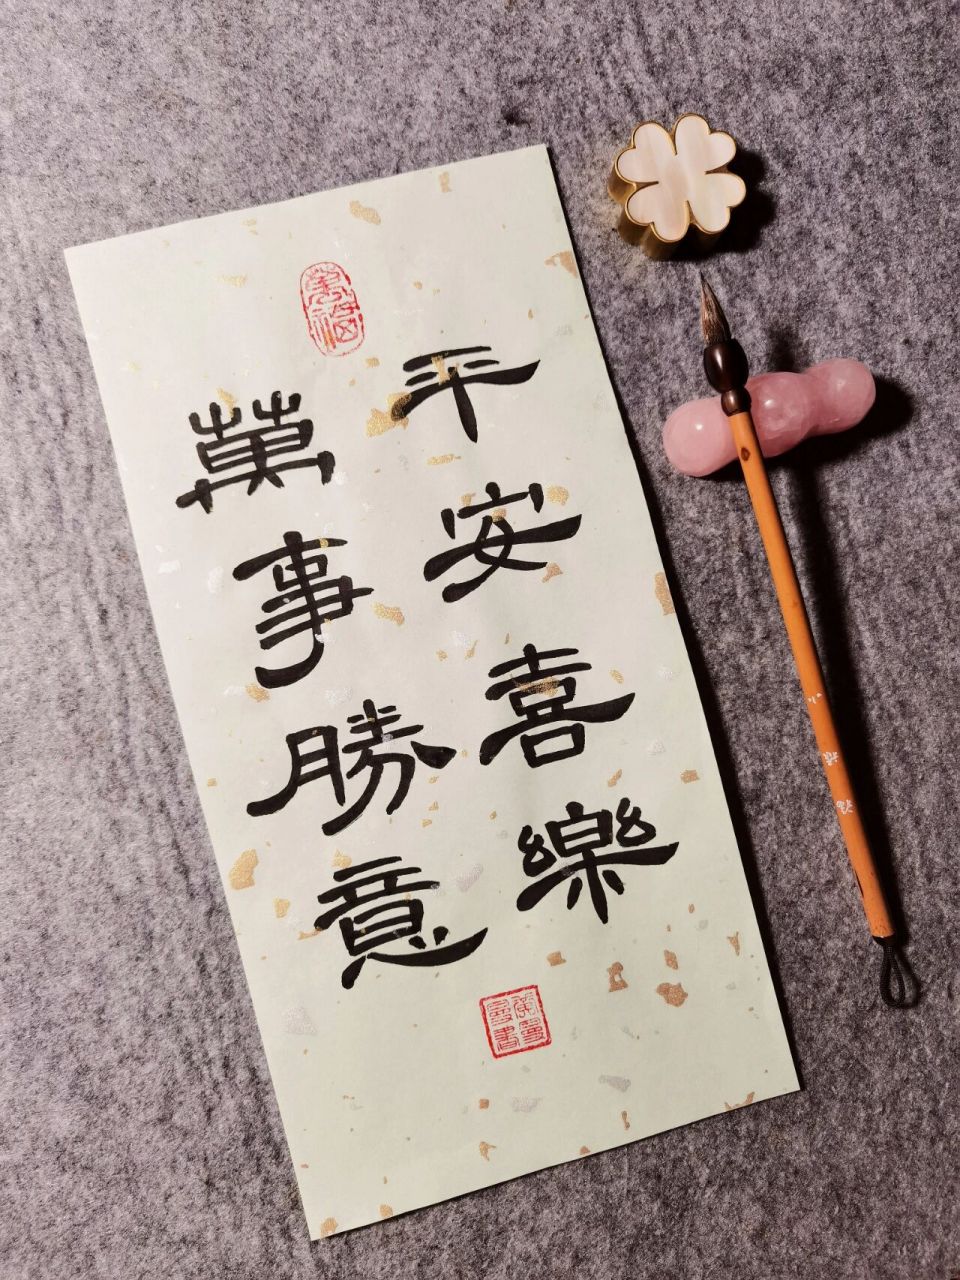 平安喜樂
萬事勝意
萬福